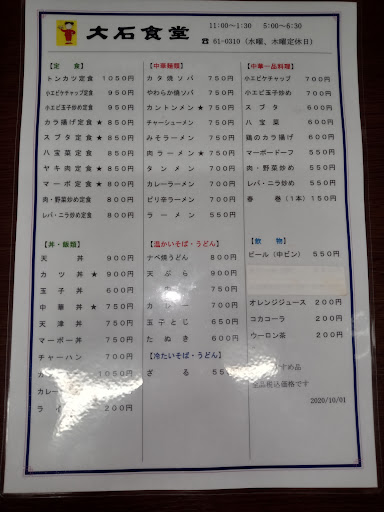 大石食堂
11:00～1:30　5:00～6:30
☎ 61-0310（水曜、木曜定休日）
【定　食】
トンカツ定食　1050円
小エビケチャップ定食　950円
小エビ玉子炒め定食　950円
カラ揚げ定食★　850円
スブタ定食★　850円
八宝菜定食★　850円
ヤキ肉定食★　800円
マーボ定食★　800円
肉・野菜炒め定食　800円
レバ・ニラ炒め定食　800円
【中華麺類】
カタ焼ソバ　750円
やわらか焼ソバ　750円
カントンメン★　750円
チャーシューメン　750円
みそラーメン★　750円
肉ラーメン★　750円
タンメン　700円
カレーラーメン　700円
ピリ辛ラーメン　700円
ラーメン　550円
【中華一品料理】
小エビケチャップ　700円
小エビ玉子炒め　700円
スブタ　600円
八宝菜　600円
鶏のカラ揚げ　600円
マーボードーフ　550円
肉・野菜炒め　550円
レバ・ニラ炒め　550円
春巻（1本）150円
【丼・飯類】
天丼　900円
カツ丼★　900円
玉子丼　600円
中華丼★　750円
天津丼　750円
マーボー丼　750円
チャーハン　700円
1050円
カレー
850円
ラ
200円
【温かいそば・うどん】
ナベ焼うどん　800円
天ぷら　900円
750円
700円
玉子とじ　650円
たぬき　600円
【冷たいそば・うどん】
ざる　550円
【飲　物】
ビール（中ビン）　550円
オレンジジュース　200円
コカコーラ　200円
ウーロン茶　200円
すすめ品
税込価格です
2020/10/01